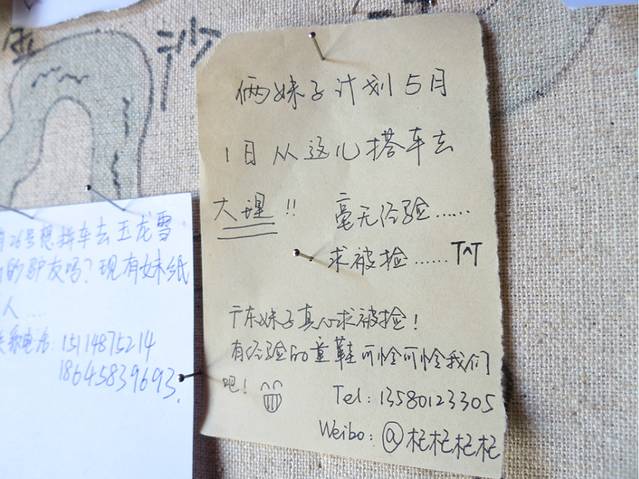 沙
俩妹子计划5月
1日从这儿搭车去
大理!! 毫无经验......
求被捡......TAT
广东妹子真心求被捡!
有经验的童鞋可怜可怜我们
吧!
Tel: 13580123305
Weibo: @杞杞杞杞
26号想拼车去玉龙雪
的驴友吗?现有妹纸
人...
系电话: 15114875214
18645839693.